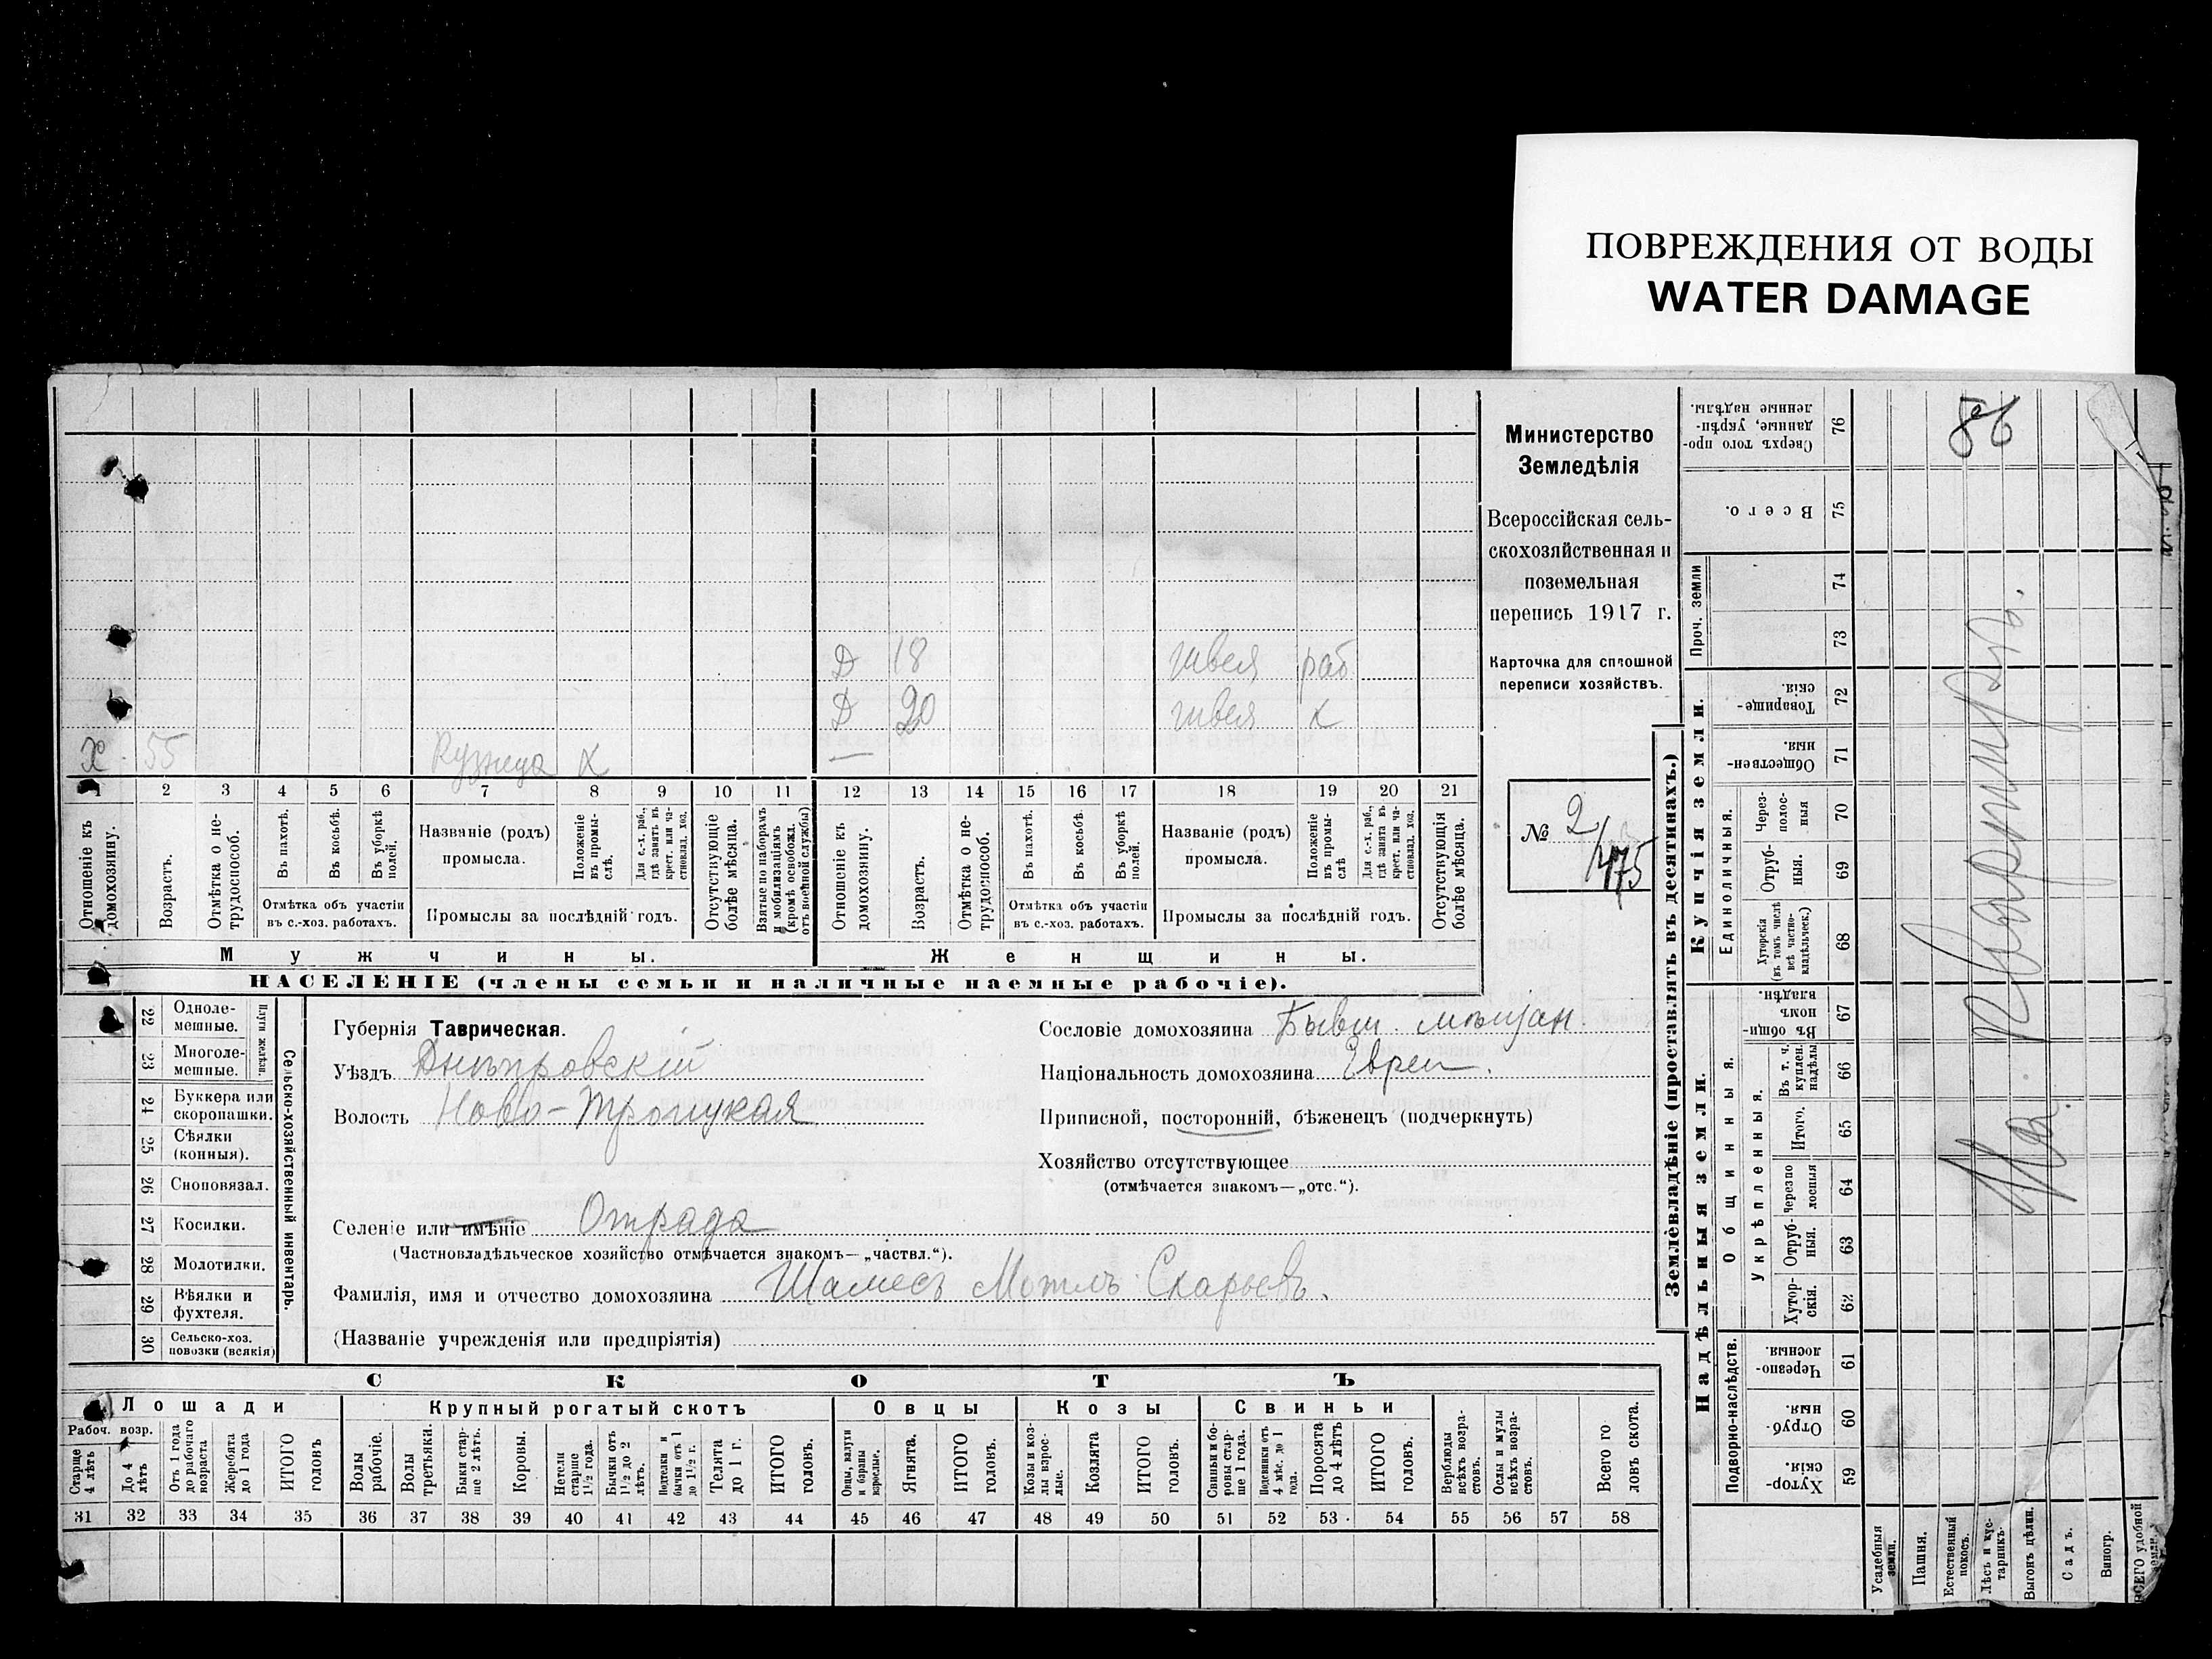 ПОВРЕЖДЕНИЯ ОТ ВОДЫ
WATER DAMAGE
Министерство
Земледѣлія
Всероссійская сель-
скохозяйственная и
поземельная
перепись 1917 г.
Карточка для сплошной
переписи хозяйствъ.
№ 2/475
86
Д 18 швея раб
Д 20 швея х
Х 55 Кузнеца х —
1 2 3 4 5 6 7 8 9 10 11 12 13 14 15 16 17 18 19 20 21
Отношеніе къ домохозяину.
Возрастъ.
Отмѣтка о не-трудоспособ.
Въ пахотѣ.
Въ косьбѣ.
Въ уборкѣ полей.
Отмѣтка объ участіи
въ с.-хоз. работахъ.
Названіе (родъ)
промысла.
Положеніе въ промы-слѣ.
Для с.-х. раб., гдѣ занятъ въ крест. или ча-стновлад. хоз.
Промыслы за послѣдній годъ.
Отсутствующіе болѣе мѣсяца.
Взятые по наборамъ и мобилизаціямъ (кромѣ освобожд. отъ военной службы)
Отношеніе къ домохозяину.
Возрастъ.
Отмѣтка о не-трудоспособ.
Въ пахотѣ.
Въ косьбѣ.
Въ уборкѣ полей.
Отмѣтка объ участіи
въ с.-хоз. работахъ.
Названіе (родъ)
промысла.
Положеніе въ промы-слѣ
Для с.-х. раб., гдѣ занята въ крест. или ча-стновлад. хоз.
Промыслы за послѣдній годъ.
Отсутствующія болѣе мѣсяца.
Мужчины. Женщины.
НАСЕЛЕНІЕ (члены семьи и наличные наемные рабочіе).
22 Одноле-мешные.
23 Многоле-мешные.
Плуги желѣзн.
24 Буккера или скоропашки.
25 Сѣялки (конныя).
26 Сноповязал.
27 Косилки.
28 Молотилки.
29 Вѣялки и фухтеля.
30 Сельско-хоз. повозки (всякія)
Сельско-хозяйственный инвентарь.
Губернія Таврическая.
Уѣздъ Днѣпровскій
Волость Ново-Троицкая
Селеніе или имѣніе Отрада
(Частновладѣльческое хозяйство отмѣчается знакомъ—„частвл.“).
Фамилія, имя и отчество домохозяина Шамесъ Мотль
(Названіе учрежденія или предпріятія)
Сословіе домохозяина Бывш. мѣщан.
Національность домохозяина Еврей.
Приписной, посторонній, бѣженецъ (подчеркнуть)
Хозяйство отсутствующее
(отмѣчается знакомъ—„отс.“).
СКОТЪ
Лошади Крупный рогатый скотъ Овцы Козы Свиньи
Рабоч. возр.
Старше 4 лѣтъ
До 4 лѣтъ
Отъ 1 года до рабочаго возраста
Жеребята до 1 года
ИТОГО головъ
Волы рабочіе.
Волы третьяки.
Быки стар-ше 2 лѣтъ.
Коровы.
Нетели старше 1½ года.
Бычки отъ 1½ до 2 лѣтъ.
Подтелки и бычки отъ 1 до 1½ г.
Телята до 1 г.
ИТОГО головъ.
Овцы, валухи и бараны взрослые.
Ягнята.
ИТОГО головъ.
Козы и коз-лы взрос-лые.
Козлята
ИТОГО головъ.
Свиньи и бо-ровы стар-ше 1 года.
Подсвинки отъ 4 мѣс. до 1 года.
Поросята до 4 лѣтъ
ИТОГО головъ.
Верблюды всѣхъ возра-стовъ.
Ослы и мулы всѣхъ возра-стовъ.
Всего го ловъ скота.
31 32 33 34 35 36 37 38 39 40 41 42 43 44 45 46 47 48 49 50 51 52 53 54 55 56 57 58
Землевладѣніе (проставлять въ десятинахъ.)
Надѣльныя земли. Купчія земли.
Проч. земли
Подворно-наслѣдств.
Общинныя.
Укрѣпленныя.
Единоличныя.
Хутор-скія 59
Отруб-ныя 60
Черезпо-лосныя 61
Хутор-скія. 62
Отруб-ныя. 63
Черезпо лосныя 64
Итого. 65
Въ т. ч. куплен. надѣлы 66
Въ общи-номъ владѣн. 67
Хуторскія (въ томъ числѣ всѣ частно-владѣльческ.) 68
Отруб-ныя. 69
Через-полос-ныя 70
Обществен-ныя. 71
Товарище-скія. 72
73
74
Всего. 75
Сверхъ того про-данные, укрѣп-ленные надѣлы. 76
Усадебныя земли.
Пашня.
Естественный покосъ.
Лѣсъ и кус-тарникъ
Выгонъ цѣлин.
Садъ.
Виногр.
ВСЕГО удобной земли.
На квартирѣ.